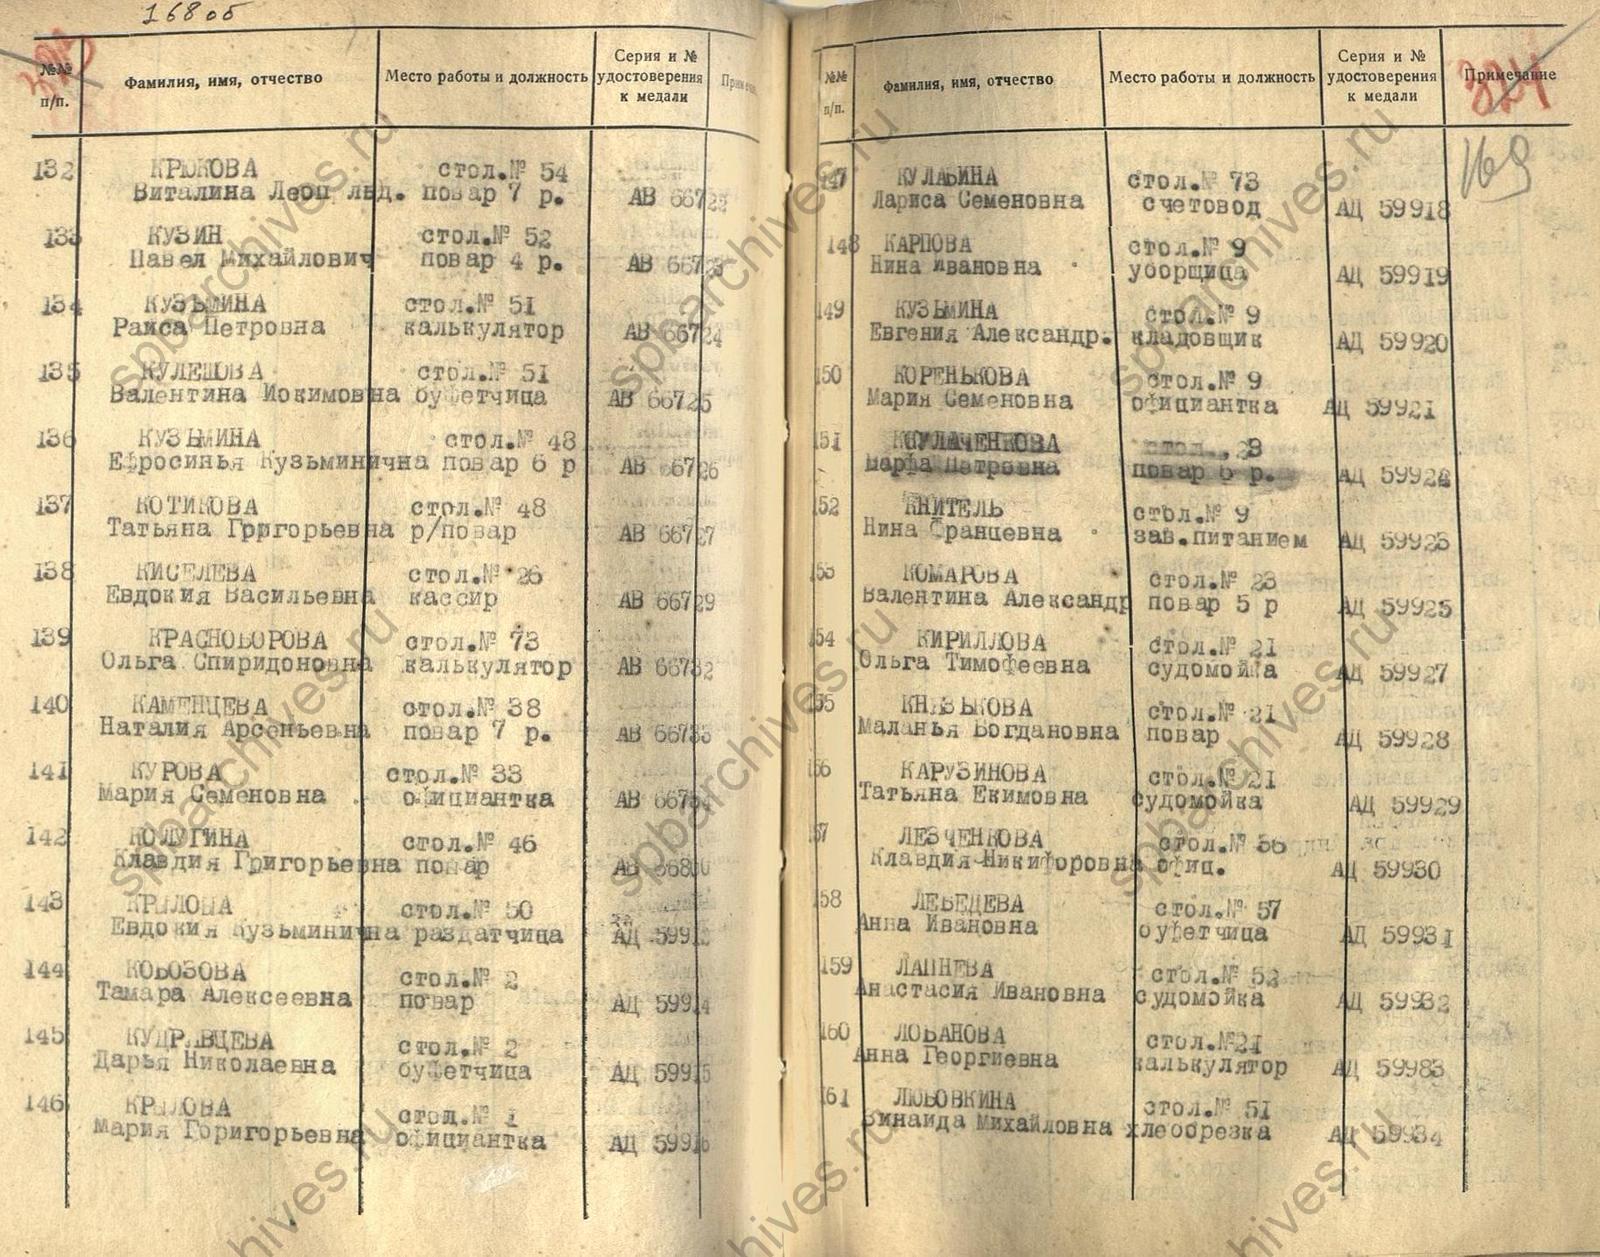 168 об
№№ п/п.
Фамилия, имя, отчество
Место работы и должность
Серия и № удостоверения к медали
132 КРЮКОВА стол.№ 54
Виталина Леоп льд. повар 7 р. АВ 66722
133 КУЗИН стол.№ 52
Павел Михайлович повар 4 р. АВ 66723
134 КУЗЬМИНА стол.№ 51
Раиса Петровна калькулятор АВ 66724
135 КУЛЕШОВА стол.№ 51
Валентина Иокимовна буфетчица АВ 66725
136 КУЗЬМИНА стол.№ 48
Ефросинья Кузьминична повар 6 р АВ 66726
137 КОТИКОВА стол.№ 48
Татьяна Григорьевна р/повар АВ 66727
138 КИСЕЛЕВА стол.№ 26
Евдокия Васильевна кассир АВ 66729
139 КРАСНОБОРОВА стол.№ 73
Ольга Спиридоновна калькулятор АВ 66732
140 КАМЕНЦЕВА стол.№ 38
Наталия Арсеньевна повар 7 р. АВ 66733
141 КУРОВА стол.№ 33
Мария Семеновна официантка АВ 66734
142 КОЛУГИНА стол.№ 46
Клавдия Григорьевна повар АВ
143 КРЫЛОВА стол.№ 50
Евдокия Кузьминична раздатчица АД
144 КОБОЗОВА стол.№ 2
Тамара Алексеевна повар АД 59914
145 КУДРЯВЦЕВА стол.№ 2
Дарья Николаевна буфетчица АД 59915
146 КРЫЛОВА стол.№ 1
Мария Горигорьевна официантка АД 59916
№№ п/п.
Фамилия, имя, отчество
Место работы и должность
Серия и № удостоверения к медали
Примечание
324
169
147 КУЛАБИНА стол.№ 73
Лариса Семеновна счетовод АД 59918
148 КАРПОВА стол.№ 9
Нина Ивановна уборщица АД 59919
149 КУЗЬМИНА стол.№ 9
Евгения Александр. кладовщик АД 59920
150 КОРЕНЬКОВА стол.№ 9
Мария Семеновна официантка АД 59921
151
Марфа Петровна повар 6 р. АД 59922
152 КНИТЕЛЬ стол.№ 9
Нина Францевна зав.питанием АД 59923
153 КОМАРОВА стол.№ 23
Валентина Александр повар 5 р АД 59925
154 КИРИЛЛОВА стол.№ 21
Ольга Тимофеевна судомойка АД 59927
155 КНЯЗЬКОВА стол.№ 21
Маланья Богдановна повар АД 59928
156 КАРУЗИНОВА стол.№ 21
Татьяна Екимовна судомойка АД 59929
157 ЛЕЗЧЕНКОВА стол.№ 56
Клавдия Никифоровна офиц. АД 59930
158 ЛЕБЕДЕВА стол.№ 57
Анна Ивановна буфетчица АД 59931
159 ЛАПНЕВА стол.№ 52
Анастасия Ивановна судомойка АД 59932
160 ЛОБАНОВА стол.№21
Анна Георгиевна калькулятор АД 59983
161 ЛЮБОВКИНА стол.№ 51
Зинаида Михайловна хлеборезка АД 59934
spbarchives.ru